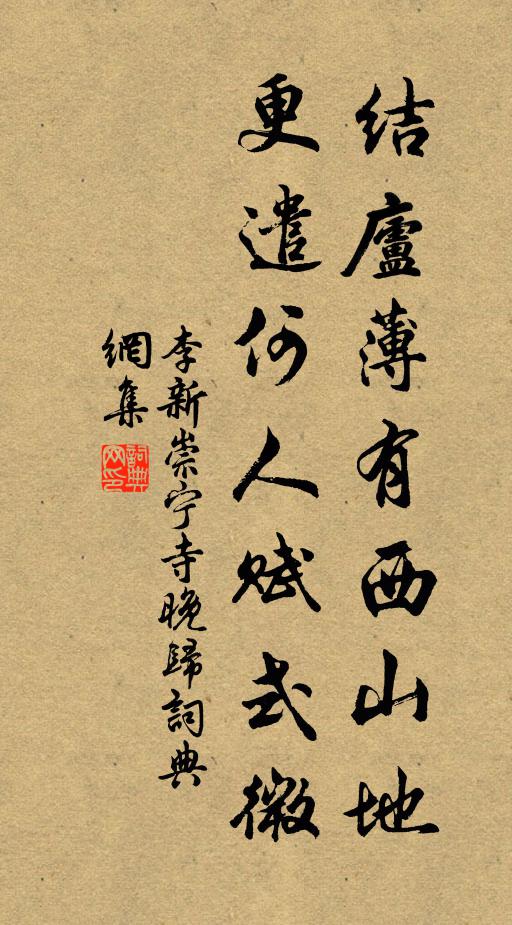 結廬薄有西山地
更遣何人賦式微
李新崇宁寺晚歸詞典
網集
詞典
网印